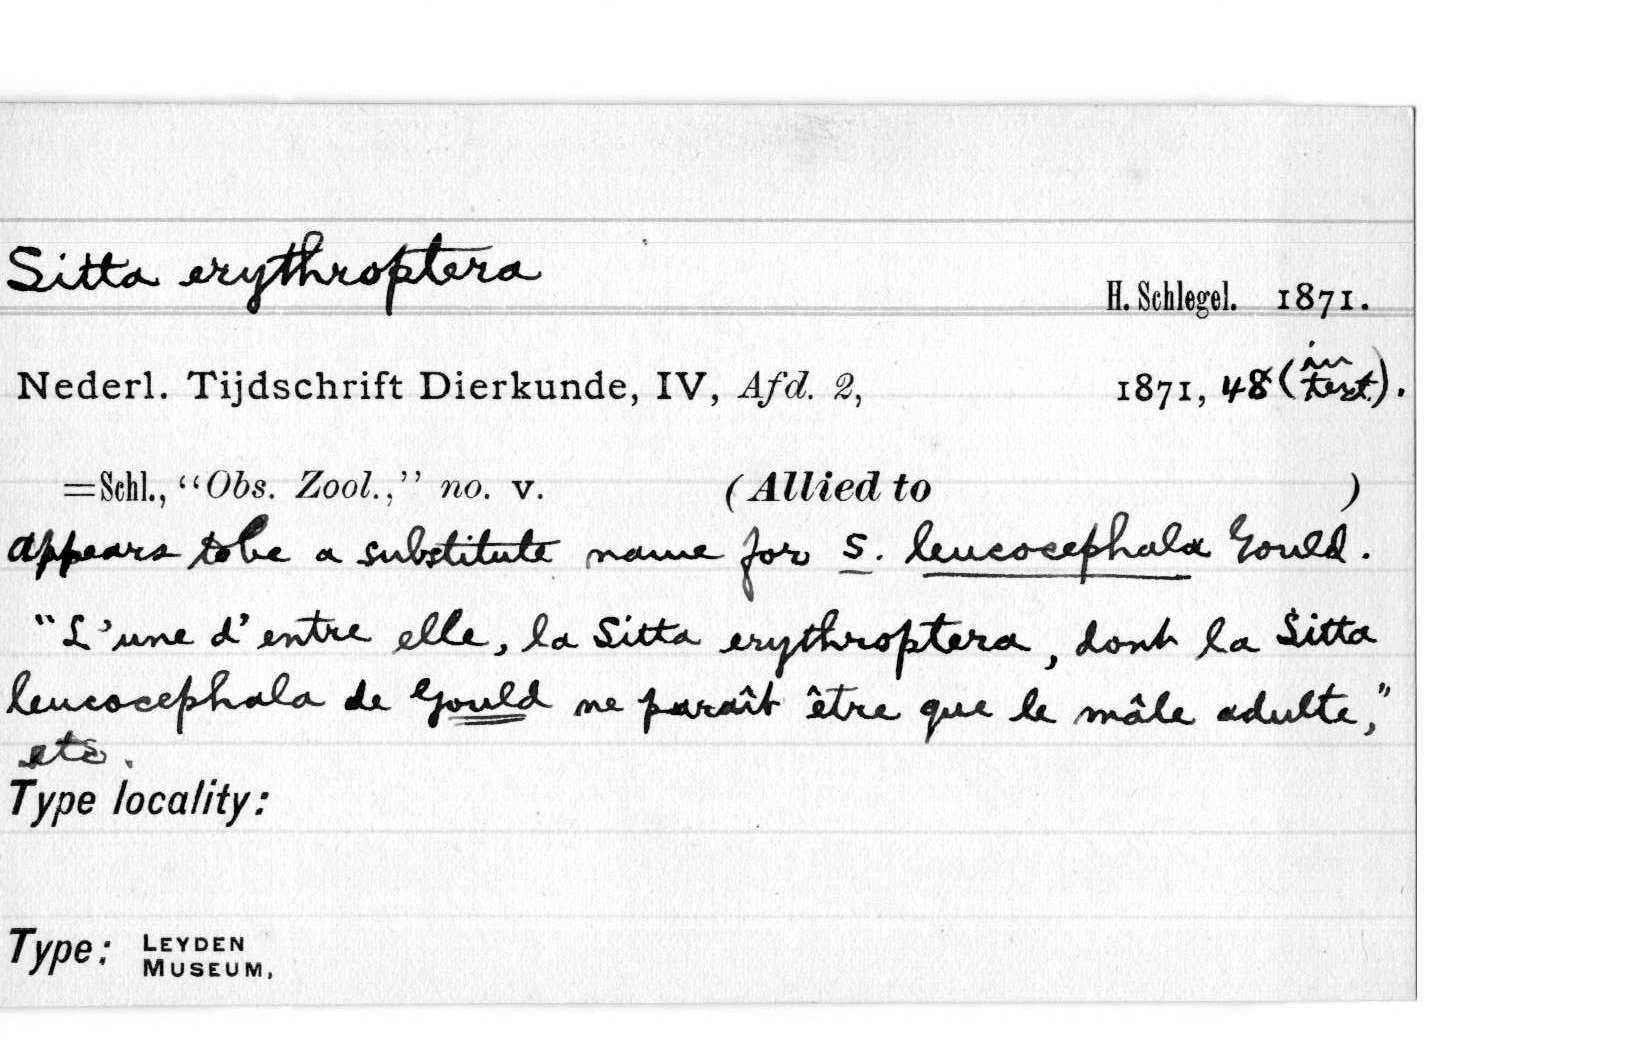 Sitta erythroptera
H. Schlegel. 1871.
Nederl. Tijdschrift Dierkunde, IV, Afd. 2, 1871, 48 (in text).
=Schl., “Obs. Zool.,” no. v. (Allied to )
appears to be a substitute name for S. leucocephala Gould.
“L’une d’entre elle, la Sitta erythroptera, dont la Sitta
leucocephala de Gould ne paraît être que le mâle adulte,”
etc.
Type locality:
Type: LEYDEN
MUSEUM,